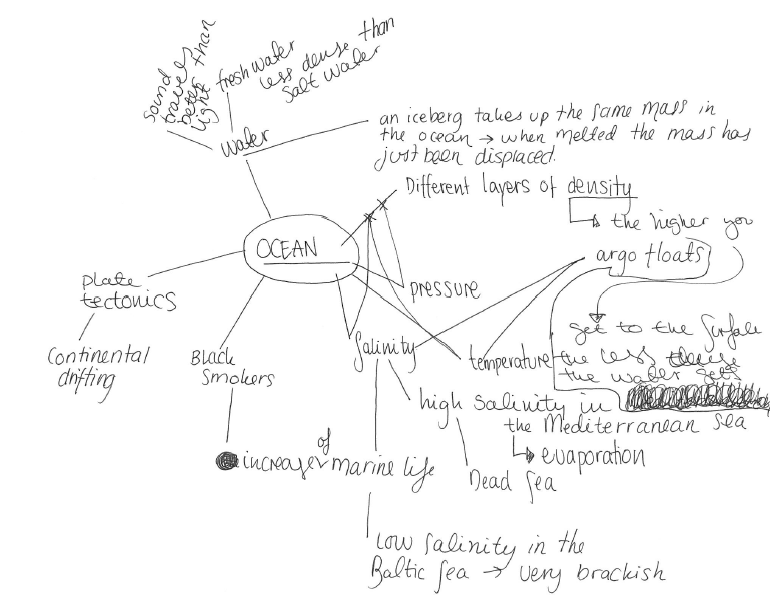 sound
travels
better than
light
fresh water
less dense than
salt water
Water
an iceberg takes up the same mass in
the ocean → when melted the mass has
just been displaced.
Different layers of density
the higher you
OCEAN
argo floats
plate
tectonics
pressure
get to the surface
Continental
drifting
Black
Smokers
Salinity
temperature
the less dense
the water gets
high salinity in
the Mediterranean Sea
evaporation
of
increase marine life
Dead Sea
Low salinity in the
Baltic Sea → very brackish